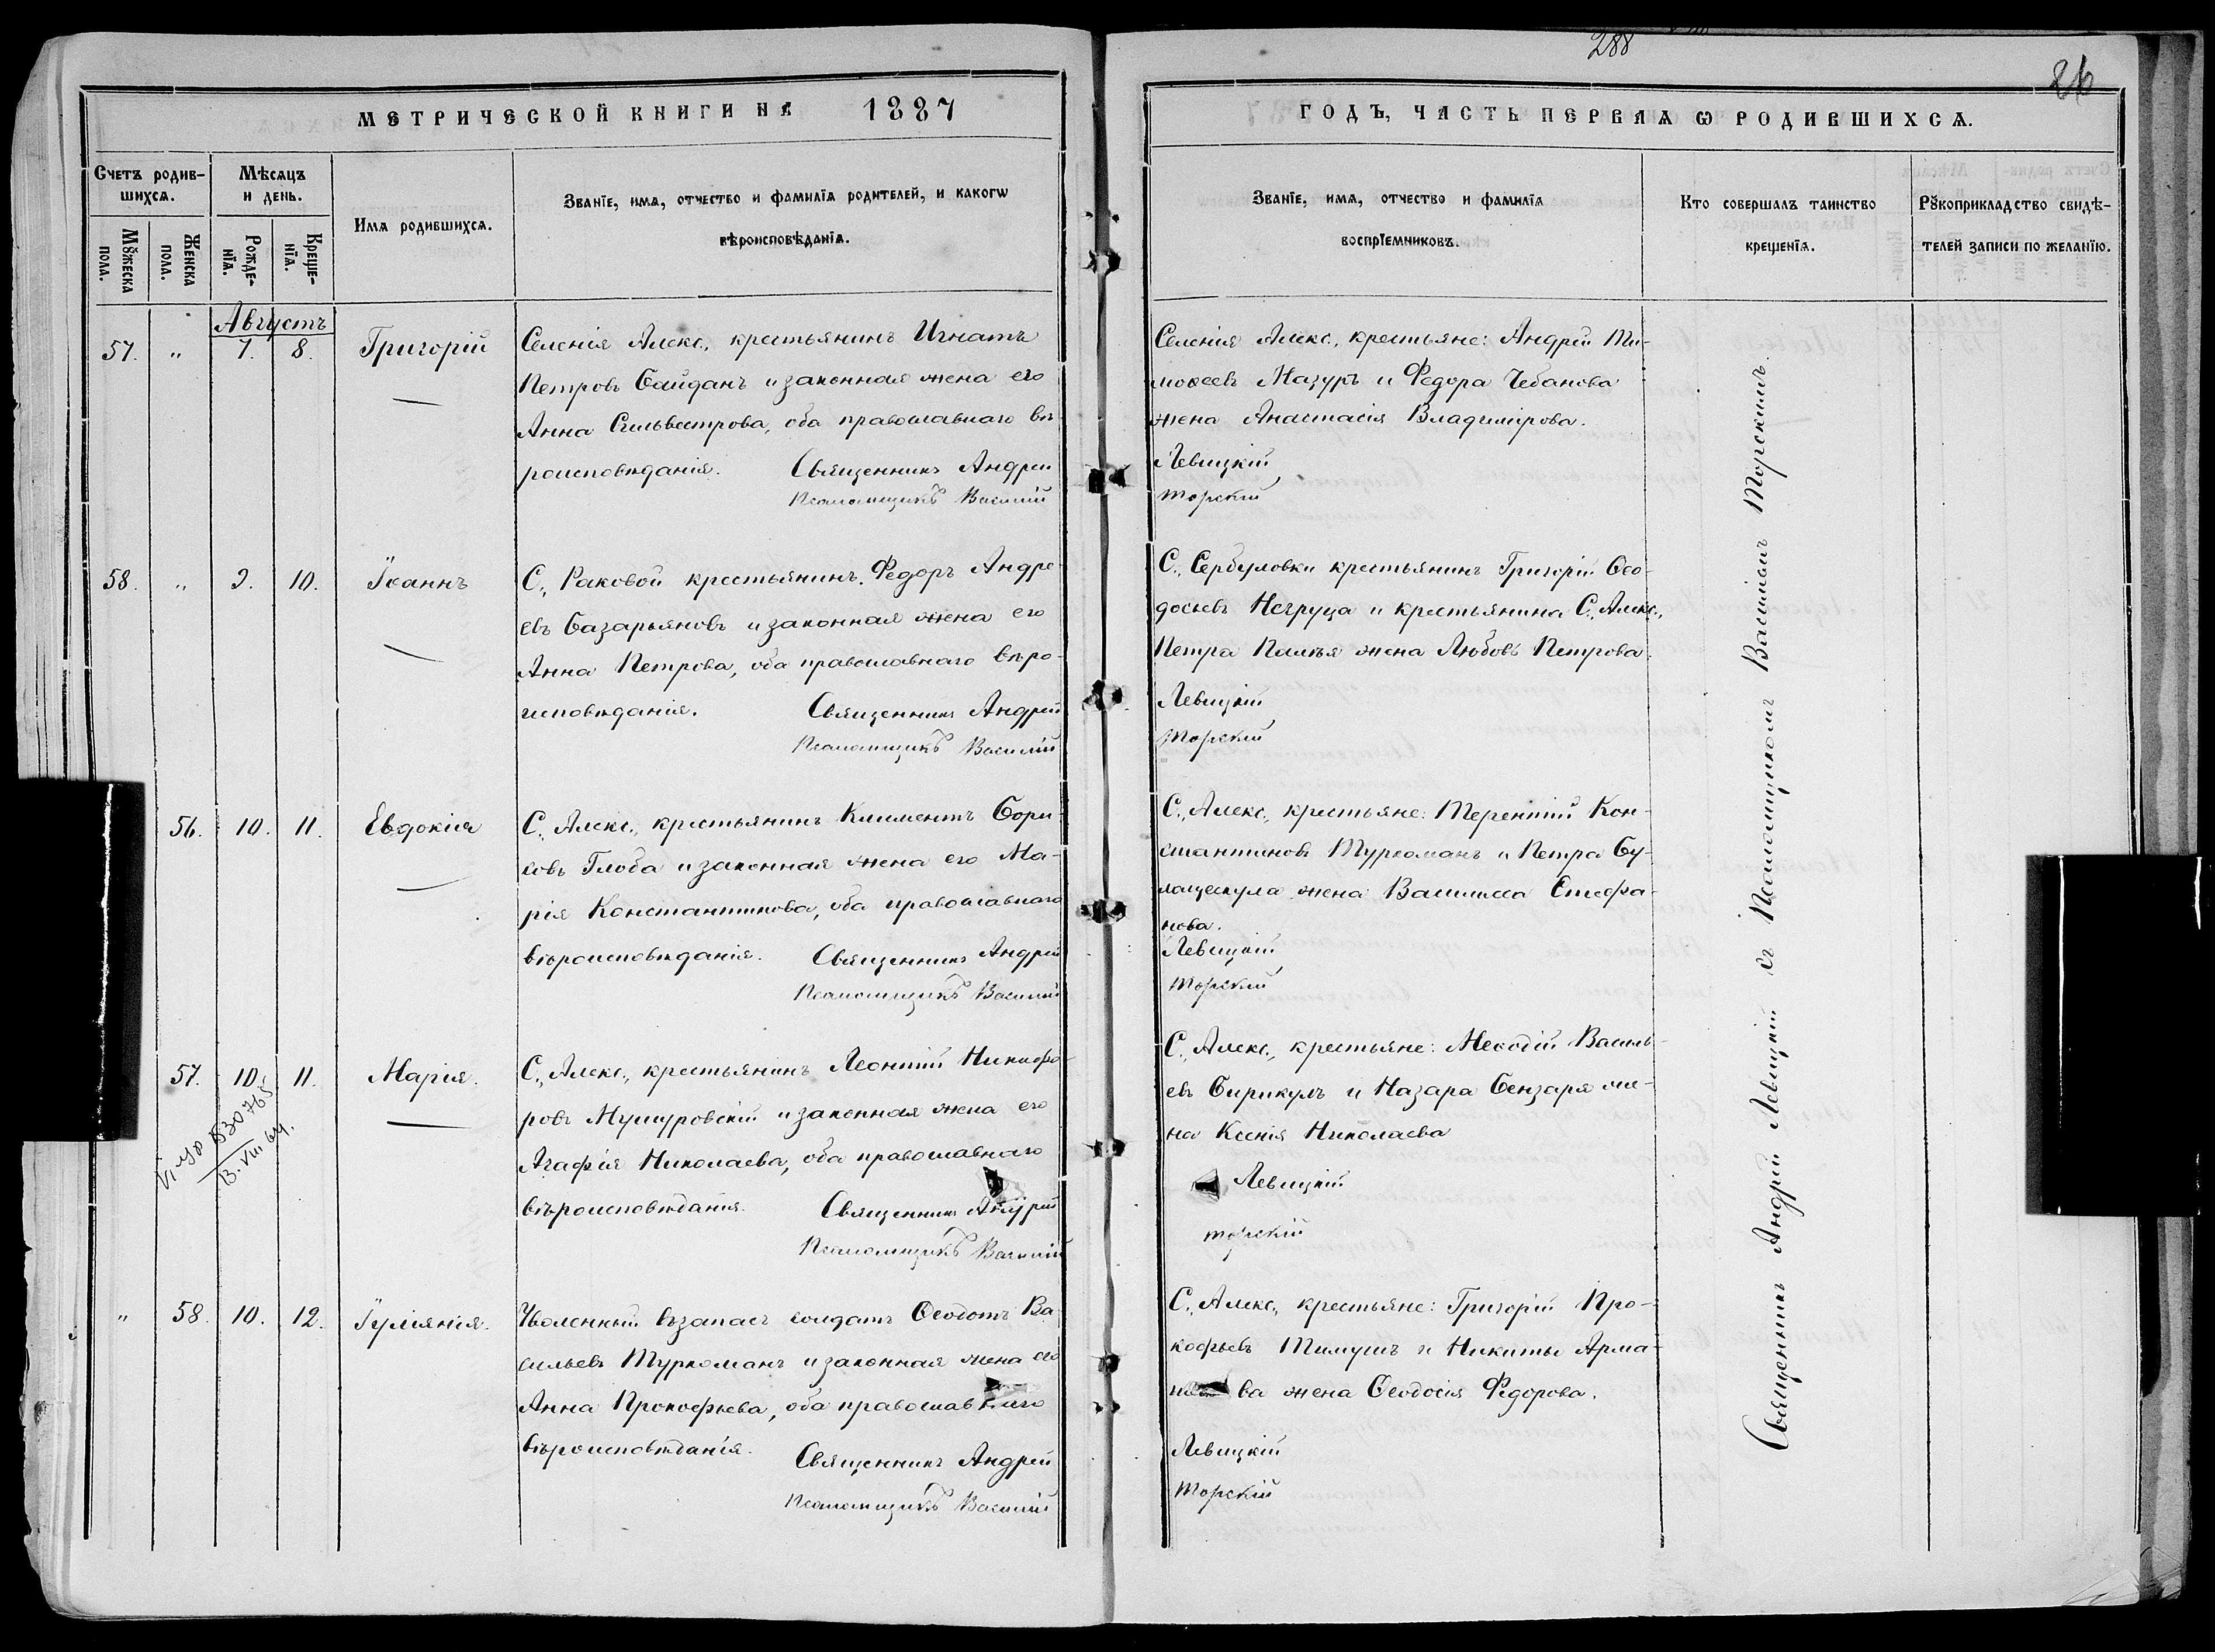 288
26
МЕТРИЧЕСКОЙ КНИГИ НА 1887
ГОДЪ, ЧАСТЬ ПЕРВАЯ Ѡ РОДИВШИХСѦ.
Счетъ родив-
шихсѧ.
Мѣсѧцъ
и день.
Имѧ родившихсѧ.
Званїе, имѧ, отчество и фамилїѧ родителей, и какогѡ
вѣроисповѣданїѧ.
Мꙋжеска
пола.
Женска
пола.
Рожде-
нїѧ.
Креще-
нїѧ.
Званїе, имѧ, отчество и фамилїѧ
воспрїемниковъ.
Кто совершалъ таинство
крещенїѧ.
Рꙋкоприкладство свидѣ-
телей записи по желанїю.
Августъ
57. " 7. 8. Григорій
Селенія Алекс., крестьянинъ Игнатъ
Петровъ Байданъ и законная жена его
Анна Сильвестрова, оба православнаго вѣ-
роисповѣданія. Священникъ Андрей
Псаломщикъ Василій
Селенія Алекс., крестьяне: Андрей Ти-
моѳеевъ Мазуръ и Федора Чебанова
жена Анастасія Владимірова.
Левицкій
Торскій
58. " 9. 10. Іоаннъ
С., Раковой крестьянинъ Федоръ Андре-
евъ Базарьяновъ и законная жена его
Анна Петрова, оба православнаго вѣро-
исповѣданія. Священникъ Андрей
Псаломщикъ Василій
С., Сербуловки крестьянинъ Григорій Ѳео-
досьевъ Негруца и крестьянина С., Алекс.,
Петра жена Любовь Петрова.
Левицкій
Торскій
56. 10. 11. Евдокія
С., Алекс., крестьянинъ Климентъ Бори-
совъ Глоба и законная жена его Ма-
рія Константинова, оба православнаго
вѣроисповѣданія. Священникъ Андрей
Псаломщикъ Василій
С., Алекс., крестьяне: Терентій Кон-
стантиновъ Туркоманъ и Петра Бу-
жена Василисса Стефа-
нова.
Левицкій
Торскій
57. 10. 11. Марія.
С., Алекс., крестьянинъ Леонтій Никифо-
ровъ Мушуровскій и законная жена его
Агафія Николаева, оба православнаго
вѣроисповѣданія. Священникъ Андрей
Псаломщикъ Василій
830765
13. VIII 64.
С., Алекс., крестьяне: Меѳодій Василь-
евъ Бирикулъ и Назара Бензаря же-
на Ксенія Николаева
Левицкій
Торскій
" 58. 10. 12. Іуліанія.
Уволенный въ запасъ солдатъ Ѳеодотъ Ва-
сильевъ Туркоманъ и законная жена его
Анна Прокофьева, оба православнаго
вѣроисповѣданія. Священникъ Андрей
Псаломщикъ Василій
С., Алекс., крестьяне: Григорій Про-
кофьевъ Тимушъ и Никиты Арма-
ва жена Ѳеодосія Федорова.
Левицкій
Торскій
Священникъ Андрей Левицкій съ Псаломщикомъ Василіемъ Торскимъ